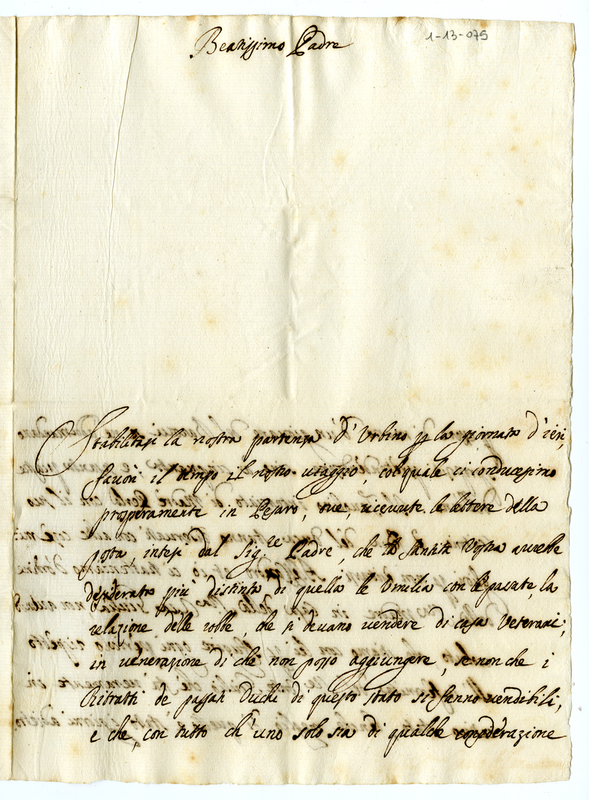 1-13-075
Beatissimo Padre
Stabilitasi la nostra partenza d'Urbino p la giornata d'ieri,
favorì il tempo il nostro viaggio, col quale ci conducessimo
prosperamente in Pesaro, ove, ricevute le lettere della
posta, intesi dal Sig.re Padre, che la Santità Vostra avrebbe
desiderato più distinta di quella le Umiliai con le passate la
relazione delle robbe, che si devano vendere di casa Veterani,
in venerazione di che non posso aggiungere, se non che i
Ritratti de passati Duchi di questo stato si fanno vendibili,
e che, con tutto ch'uno solo sia di qualche considerazione